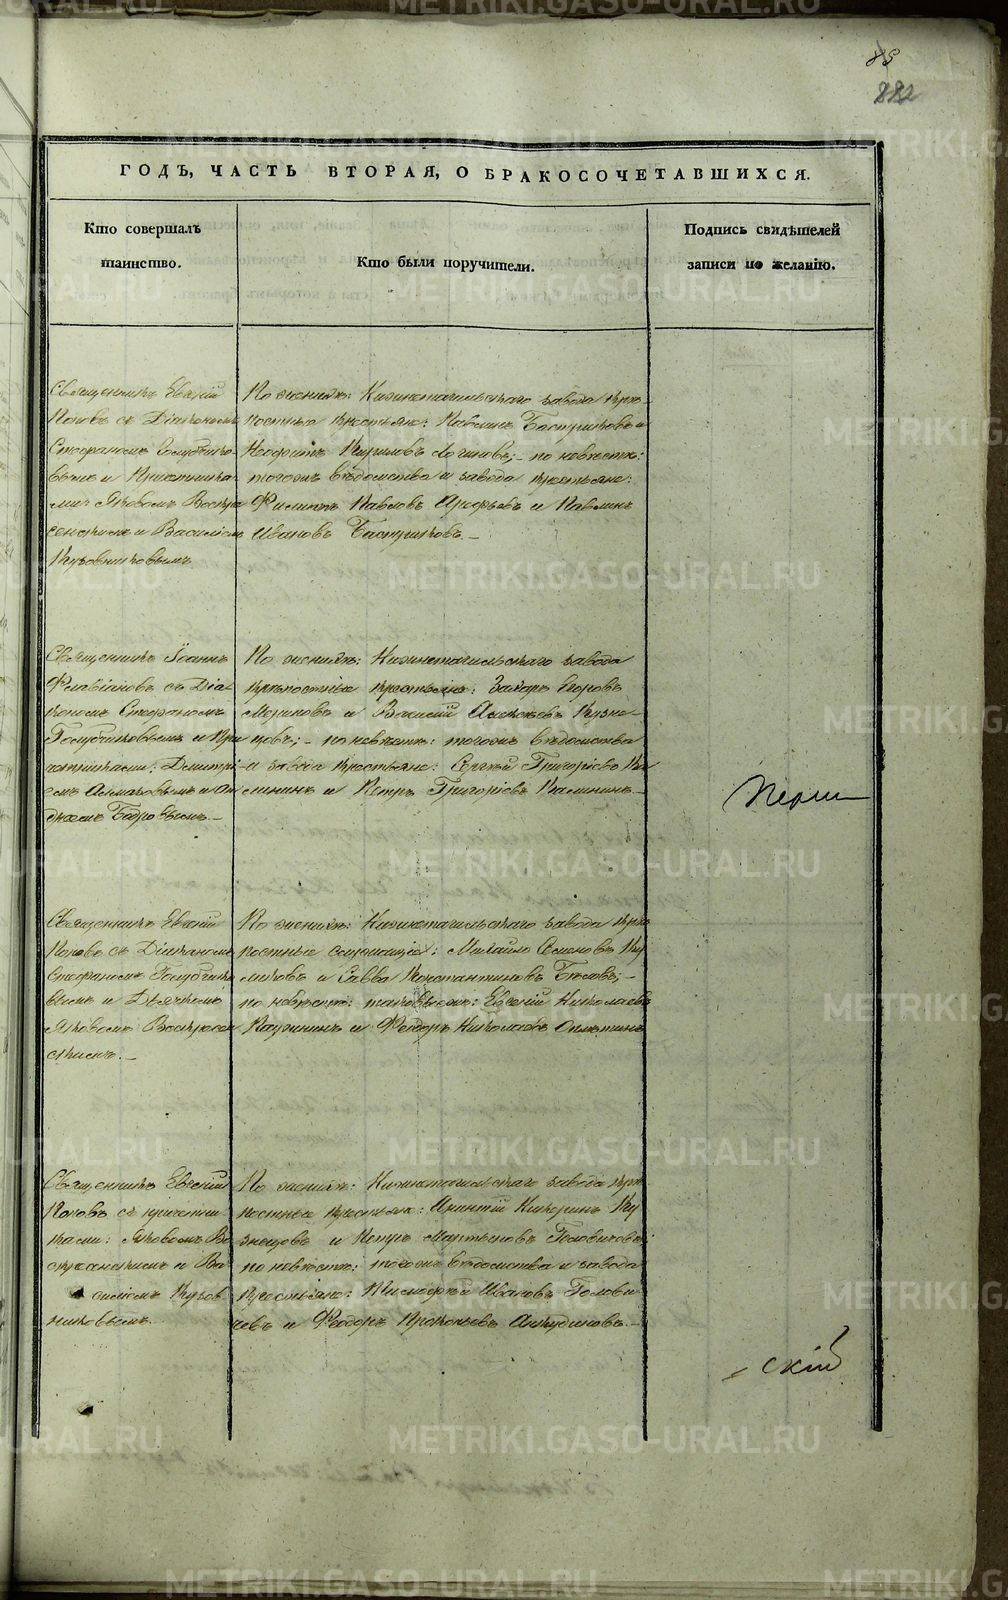 85
882
ГОДЪ, ЧАСТЬ ВТОРАЯ, О БРАКОСОЧЕТАВШИХСЯ.
Кто совершалъ
таинство.
Кто были поручители.
Подпись свидѣтелей
записи по желанію.
Священникъ Евгеній
Поповъ съ Діакономъ
Стефаномъ Голубчико-
вымъ и Причетника-
ми: Яковомъ Воскре-
сенскимъ и Василіемъ
Кузовниковымъ.
По женихѣ: Нижнетагильскаго завода крѣ-
постные крестьяне: Павлинъ и
Неофитъ Кириловъ Логиновъ; - по невѣстѣ:
тогожъ вѣдомства и завода крестьяне:
Филиппъ Павловъ Арефьевъ и Павлинъ
Ивановъ
Священникъ Іоаннъ
Флавіановъ съ Діа-
кономъ Стефаномъ
Голубчиковымъ и При-
четниками: Димитрі-
емъ и Ан-
дреемъ Бобровымъ. -
По женихѣ: Нижнетагильскаго завода
крѣпостные крестьяне: Захаръ Егоровъ
и Василій Алексѣевъ Кузне-
цовъ; - по невѣстѣ: тогожъ вѣдомства
и завода крестьяне: Сергѣй Григорьевъ Ка-
лининъ и Петръ Григорьевъ Калининъ. -
Священникъ Евгеній
Поповъ съ Діакономъ
Стефаномъ Голубчико-
вымъ и Дьячкомъ
Яковомъ Воскресен-
скимъ. -
По женихѣ: Нижнетагильскаго завода крѣ-
постные служащіе: Михайло Семеновъ Ку-
ликовъ и Савва Константиновъ Бѣловъ; -
по невѣстѣ: таковыежъ: Евгеній Николаевъ
и Феодоръ Николаевъ
Священникъ Евгеній
Поповъ съ причетни-
ками: Яковомъ Во-
скресенскимъ и Ва-
силіемъ Кузов-
никовымъ.
По женихѣ: Нижнетагильскаго завода крѣ-
постные крестьяне: Ку-
знецовъ и Петръ Мартыновъ Головичовъ;
по невѣстѣ: тогожъ вѣдомства и завода
крестьяне: Тимофѣй Ивановъ Голови-
чевъ и Феодоръ Прокопьевъ Антудиновъ. -
скій